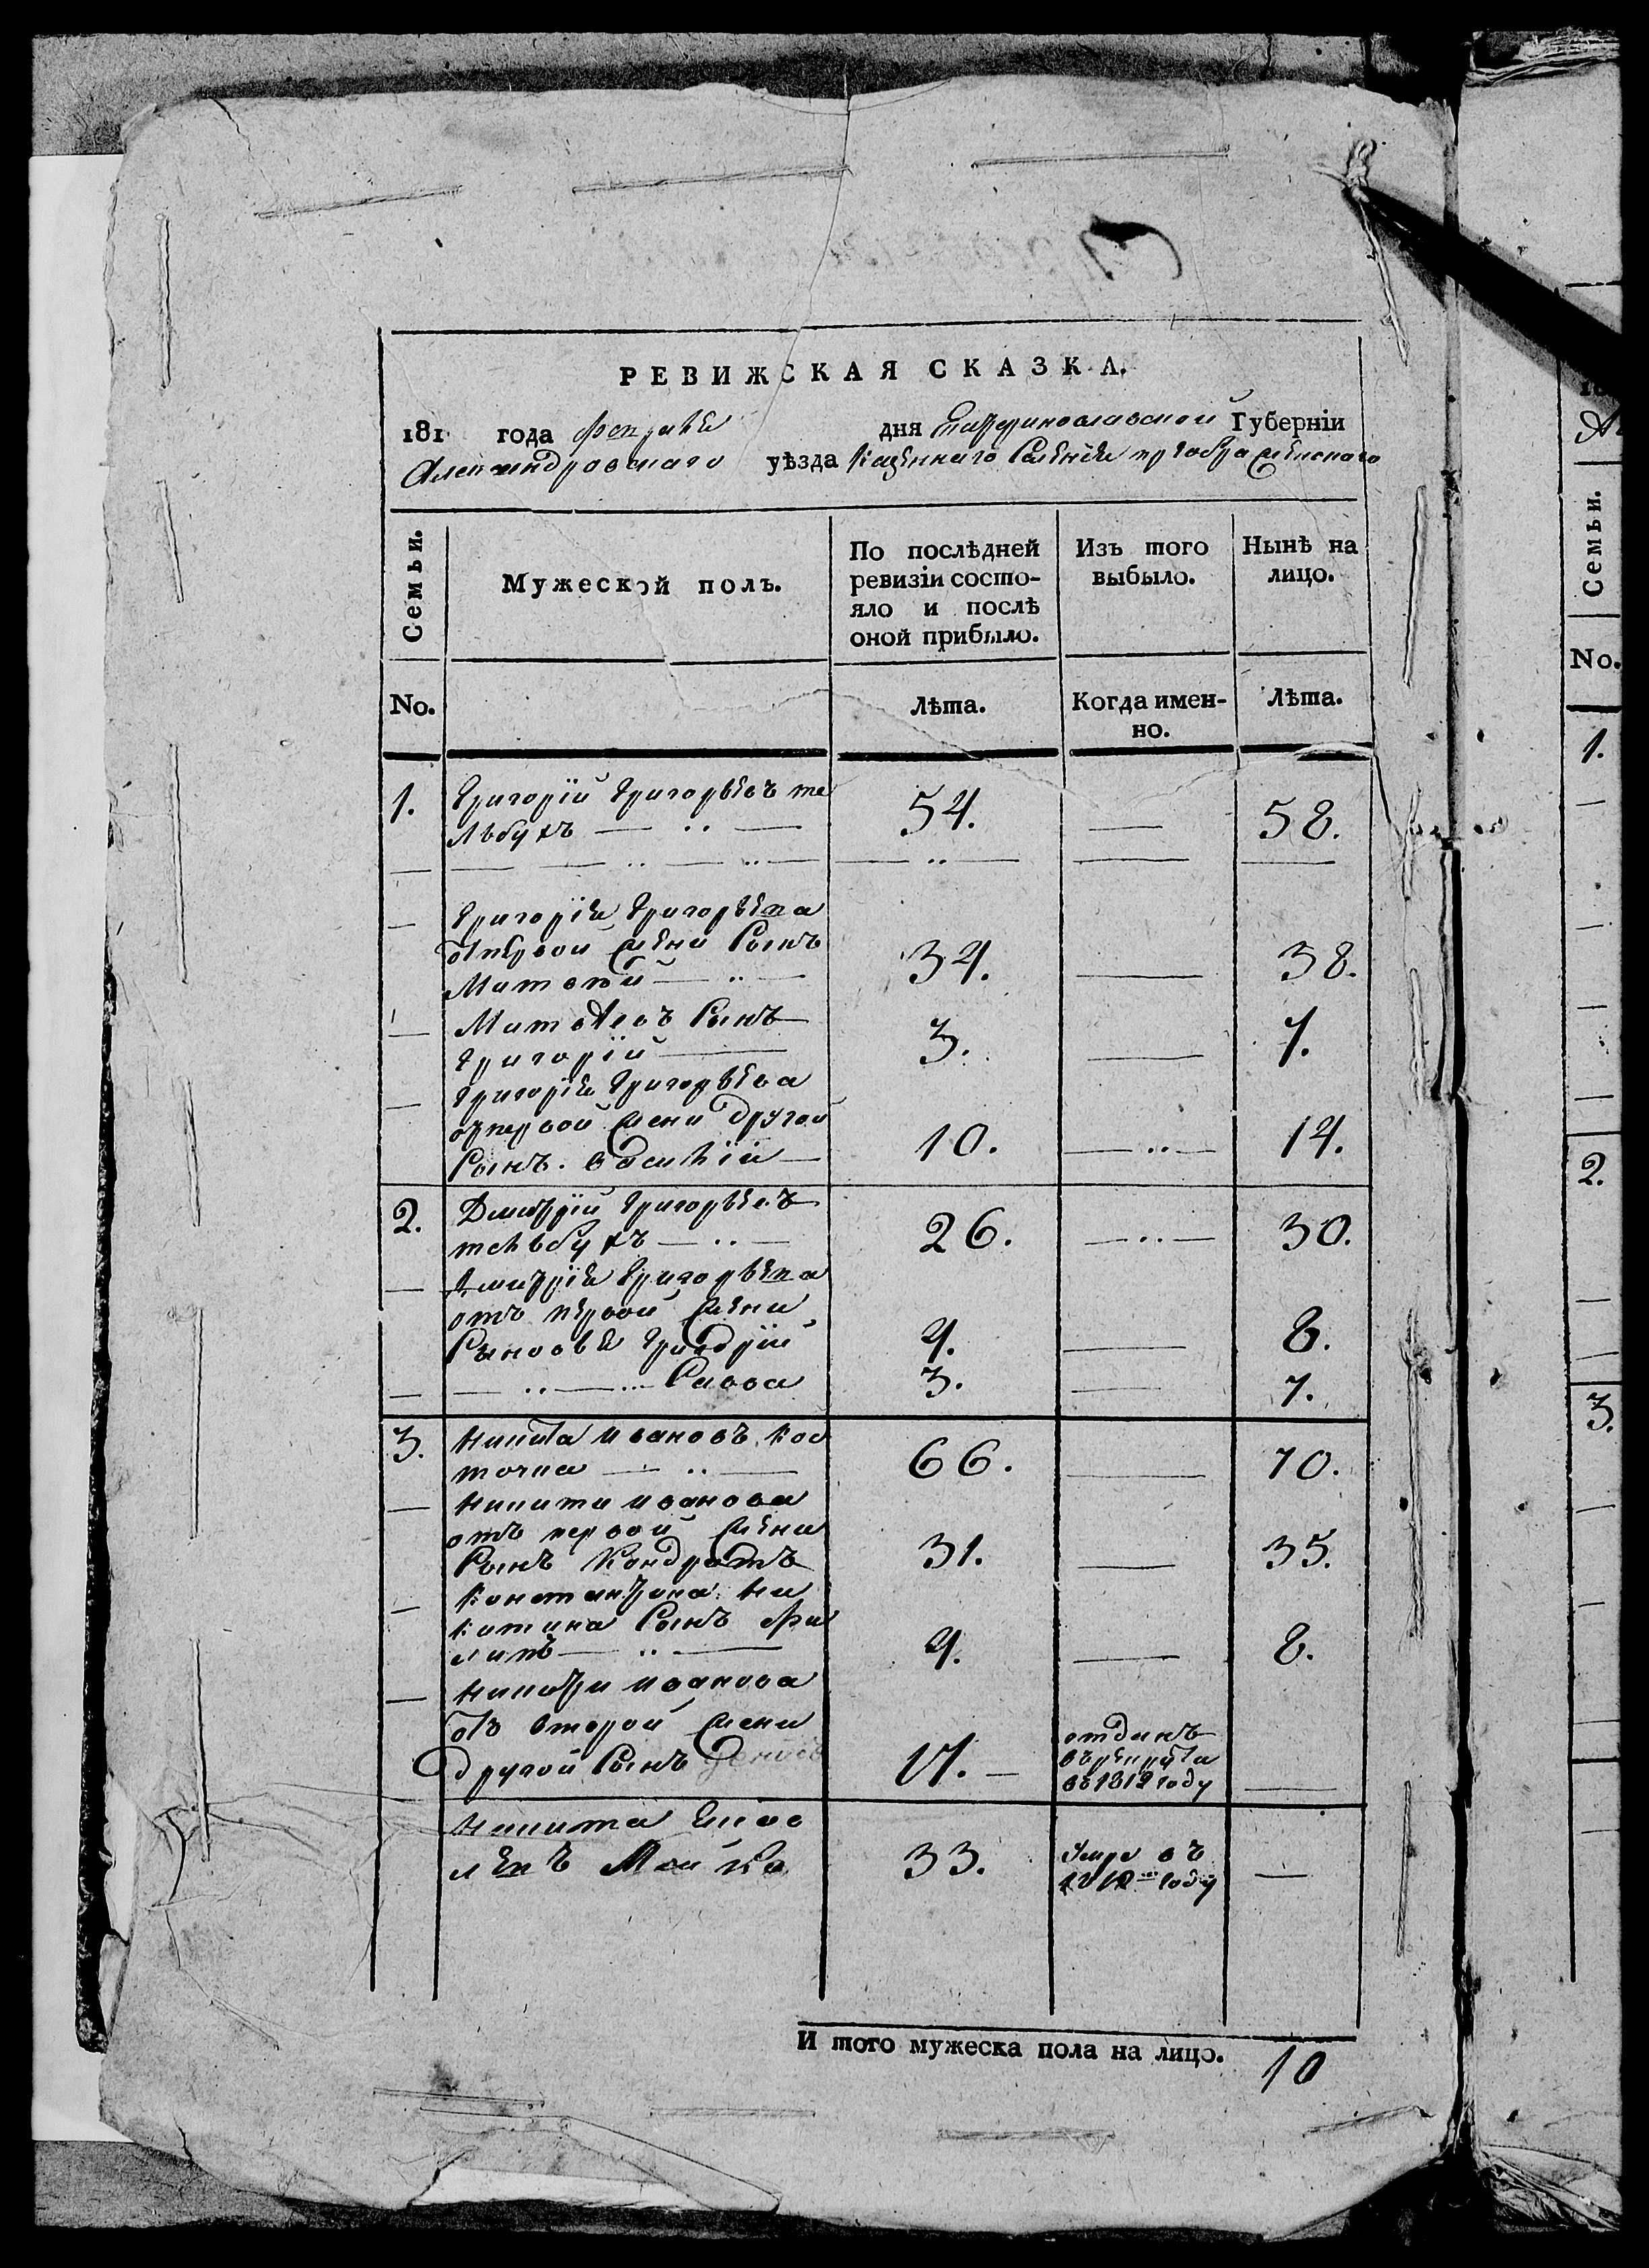 РЕВИЖСКАЯ СКАЗКА.
181 года февраля дня Екатеринославской Губерніи
Александровскаго уѣзда Казеннаго Селенія преображенскаго
Семьи.
Мужеской полъ.
По послѣдней
ревизіи состо-
яло и послѣ
оной прибыло.
Изъ того
выбыло.
Нынѣ на
лицо.
No.
Лѣта.
Когда имен-
но.
Лѣта.
1. Григорій Григорьевъ те
льбухъ 54. 58.
Григорія Григорьева
отпервой жени Сынъ
Матвей 34. 38.
Матвеевъ Сынъ
Григорій 3. 7.
Григорія Григорьева
отпервой жени другой
Сынъ василій 10. 14.
2. Дмитрій Григорьевъ
тельбухъ 26. 30.
Дмитрія Григорьева
отъ первой жени
Сыновья Григорій 4. 8.
Савва 3. 7.
3. Никита ивановъ кос
точка 66. 70.
Никити иванова
отъ первой жени
Сынъ Кондратъ 31. 35.
Константина Ни
китина Сынъ фи
липъ 4. 8.
Никити иванова
отъ второй жени
другой Сынъ денисъ 17. отданъ
врекрута
въ 1812 году
Никита
Мойка 33. Умре въ
году
И того мужеска пола на лицо. 10
Семьи.
No.
1.
2.
3.